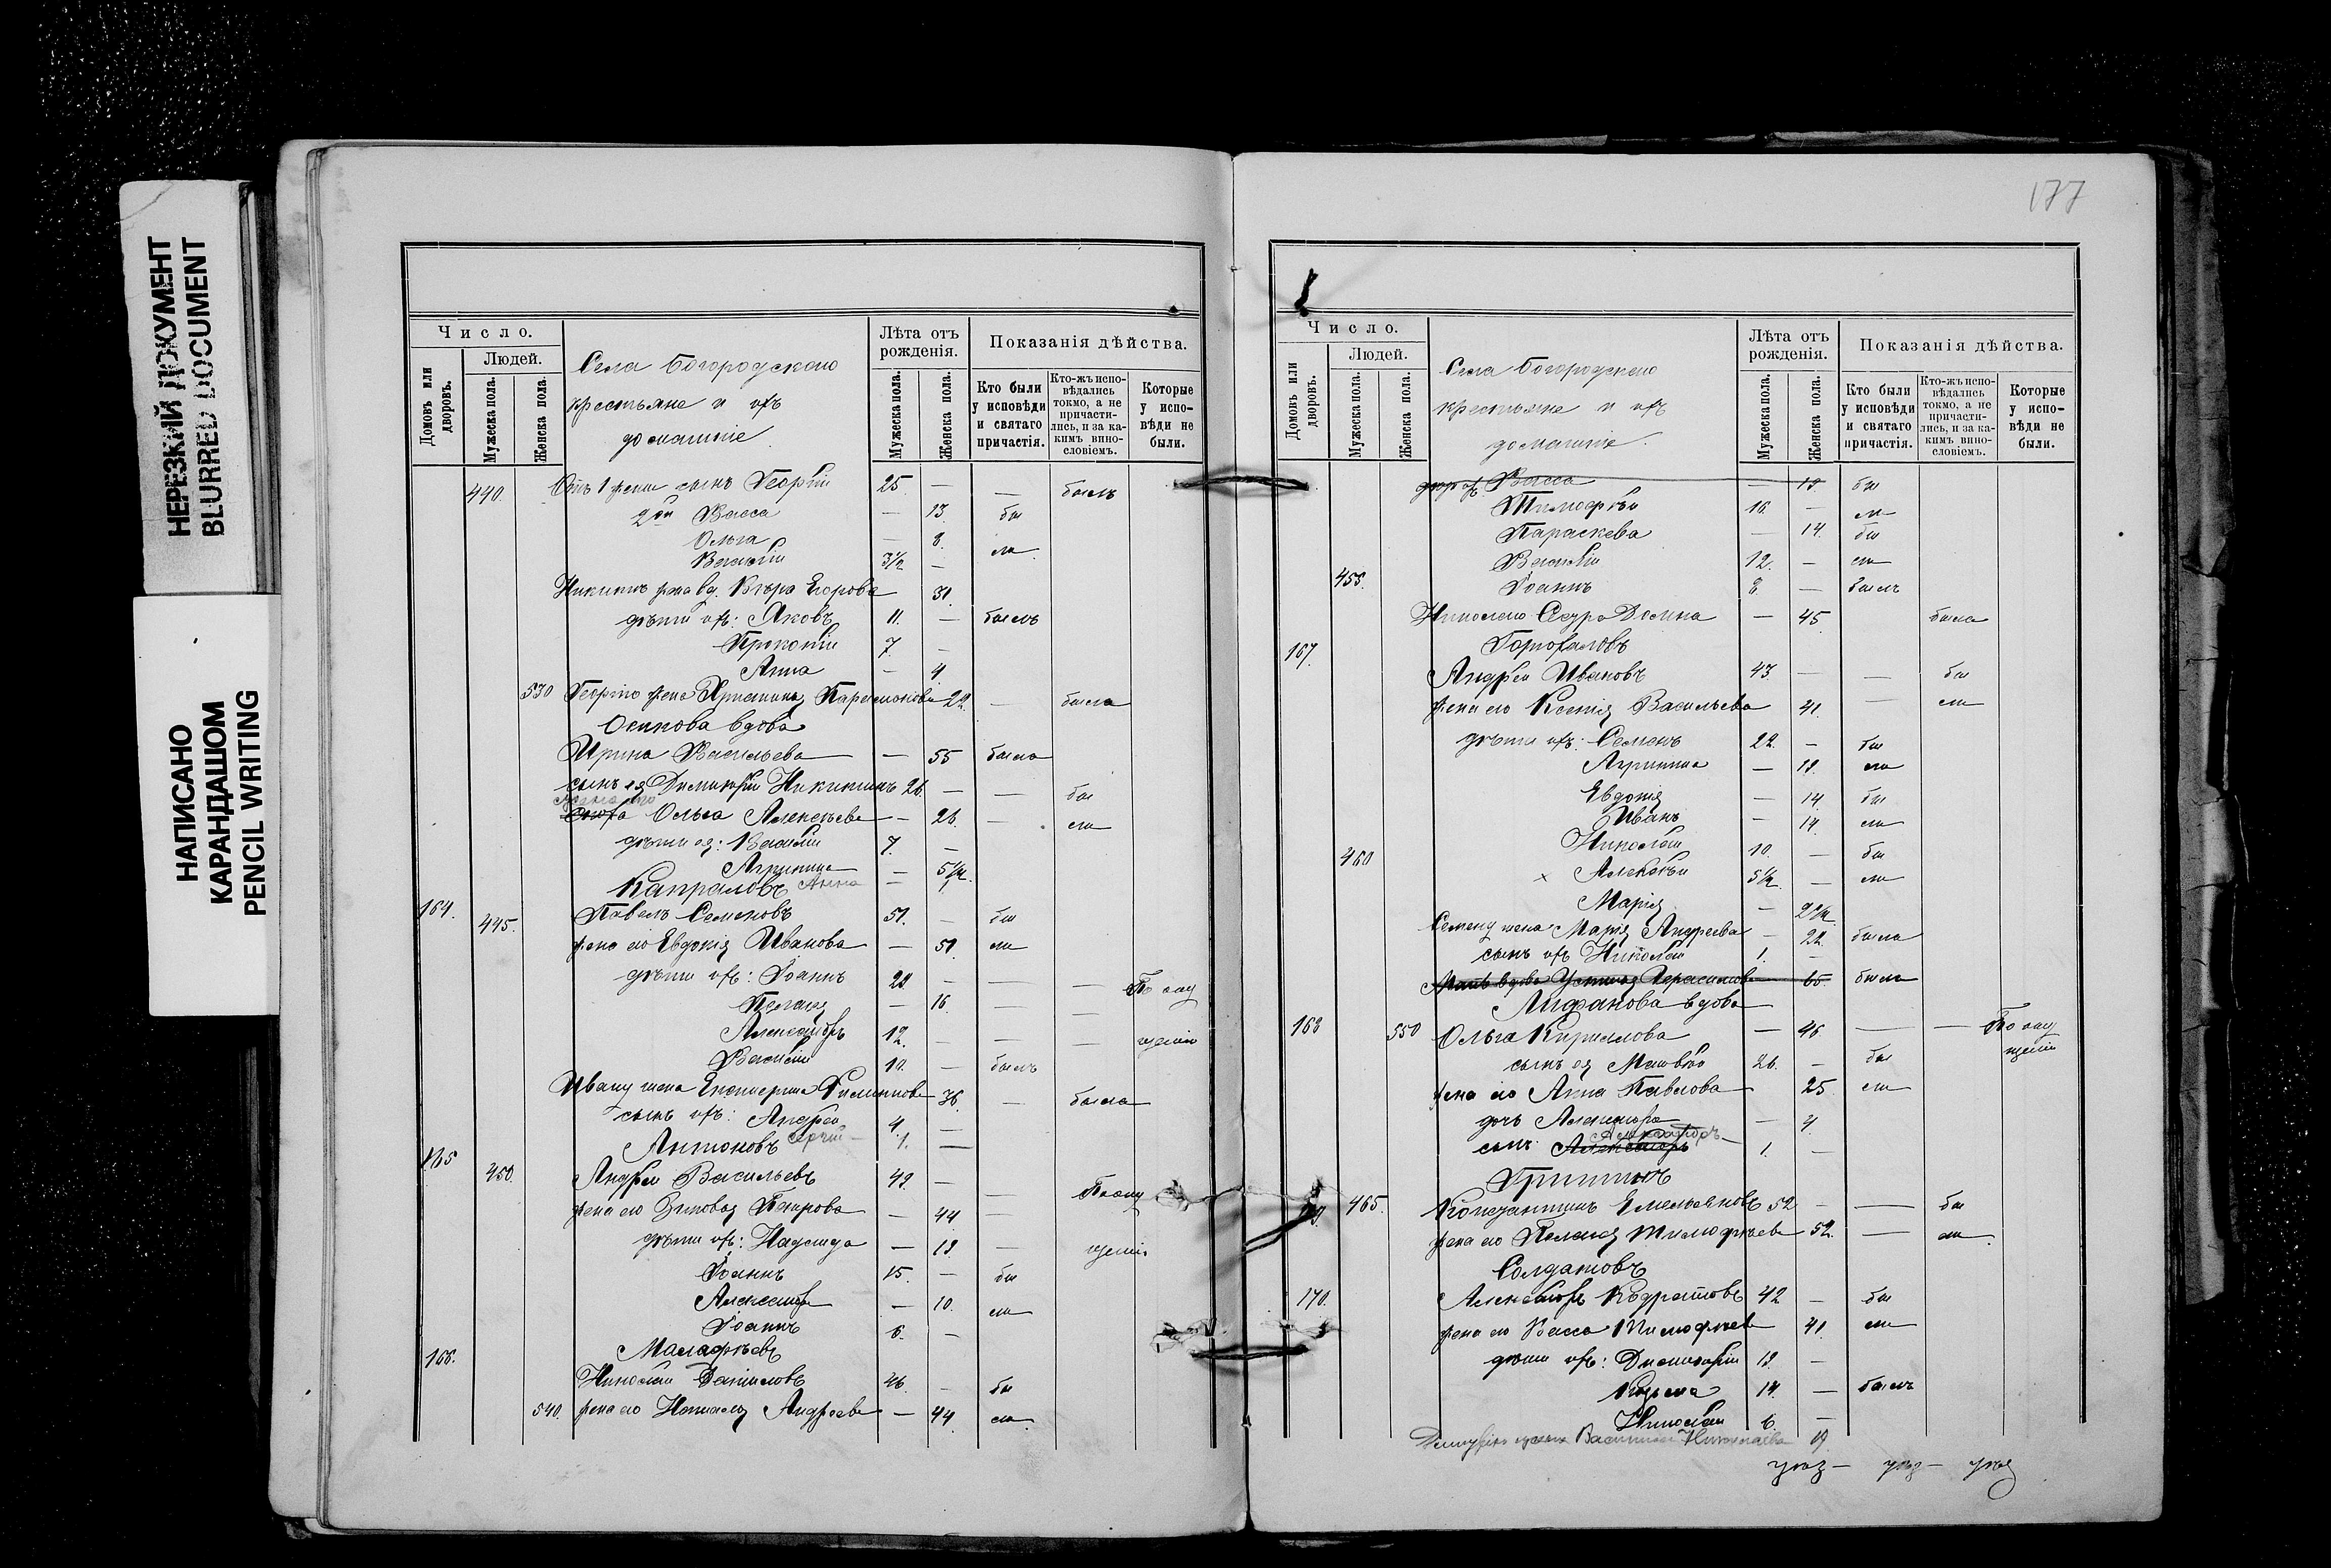 НЕРЕЗКИЙ ДОКУМЕНТ
BLURRED DOCUMENT
НАПИСАНО
КАРАНДАШОМ
PENCIL WRITING
Число.
Людей.
Домовъ или дворовъ.
Мужеска пола.
Женска пола.
Села Богородскаго
крестьяне и ихъ
домашніе
Лѣта отъ рожденія.
Мужеска пола.
Женска пола.
Показанія дѣйства.
Кто были у исповѣди и святаго причастія.
Кто-жъ исповѣдались токмо, а не причастились, и за какимъ винословіемъ.
Которые у исповѣди не были.
440. Отъ 1 жены сынъ Георгій 25 — — былъ
Васса — 13. бы
Ольга — 8.
Василій 3½ — ли
Вѣра Егорова 31.
дѣти ихъ: Яковъ 11. — былъ
Прокопій 7. —
Анна — 4
530 жена Параmонова 22. — была
Осипова вдова
Ирина Васильева — 55 была
сынъ ея Димитрій Никитинъ 26. — — бы
жена его
Ольга Алексѣева — 26. — ли
дѣти ея: Василій 7. —
Агрипина — 5½.
Капраловъ Анна — 1
164. 445. Павелъ Семеновъ 51. — бы
жена его Евдокія Ивановa — 51. ли
дѣти ихъ: Іоаннъ 23 — — — По опу
Пелагія — 16. — —
Александръ 12. — — — щенію
Василій 10. — былъ
Ивану жена Екатерина 36. — была
сынъ ихъ: Андрей 4. —
Антоновъ Сергій — 1. —
165 450. Андрей Васильевъ 49. — — По опу
жена его Зиновія Петрова — 44 —
дѣти ихъ: Надежда — 19. — щенію
Іоаннъ 15. — бы
Александра — 10. ли
Іоаннъ 6. —
Малафѣевъ
166. Николай Даниловъ 46. — бы
540. жена его Наталія Андреева — 44. ли
177
Число.
Людей.
Домовъ или дворовъ.
Мужеска пола.
Женска пола.
Села Богородскаго
крестьяне и ихъ
домашніе.
Лѣта отъ рожденія.
Мужеска пола.
Женска пола.
Показанія дѣйства.
Кто были у исповѣди и святаго причастія.
Кто-жъ исповѣдались токмо, а не причастились, и за какимъ винословіемъ.
Которые у исповѣди не были.
Васса — 19. бы
Тимофѣй 16. — ли
Параскева — 14. бы
Василій 12. — ли
455. Іоаннъ 8 — былъ
Сестра Домна — 45. была
167.
Андрей Ивановъ 43. — — бы
жена его Ксенія Васильева 41. — ли
дѣти ихъ: Семенъ 22. — бы
Агрипина — 19. ли
Евдокія — 14. бы
Иванъ — 14. ли
460 Николай 10. — бы
× Алексѣй 5½. — ли
Марія — 2½
Семену жена Марія Андреева — 22. была
сынъ ихъ Николай 1. —
Мать вдова Герасимова — 65. была
Лифанова вдова
168 550 Ольга Кириллова — 46. — — По опу
сынъ ея Матвѣй 26. — бы щенію
жена его Анна Павлова 25. ли
дочь Александра — 4.
Александръ —
сынъ Александръ 1. —
Гришинъ
465. Константинъ Емельяновъ 52 — — бы
жена его Пелагія Тимофѣева 52. — ли.
Солдатовъ
170. Александръ Кодратовъ 42 — бы
жена его Васса Тимофѣева 41. ли
дѣти ихъ: Димитрій 19. —
Козьма 14. — былъ
Николай 6. —
Николаева 19.